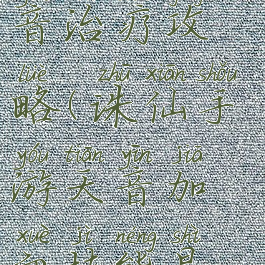 音治疗攻
lüè zhū xiān shǒu
略(诛仙手
yóu tiān yīn jiā
游天音加
xuè jì néng shì